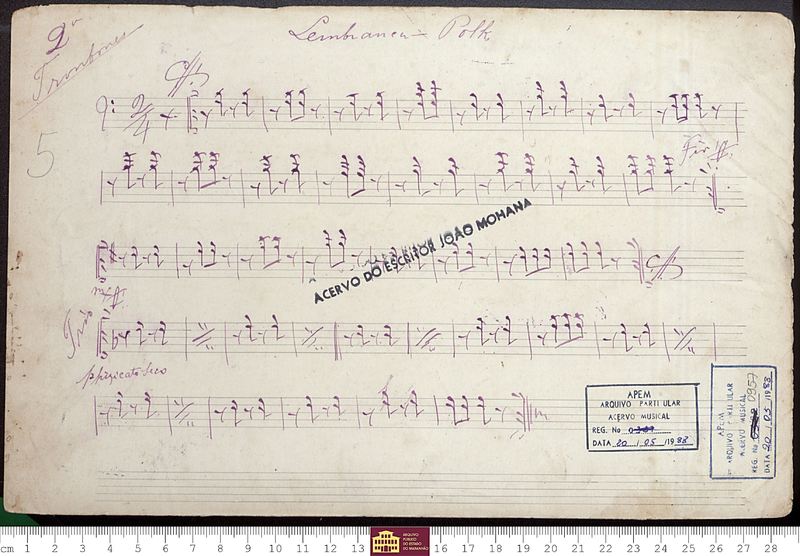 2º
Trombones
Lembranca = Polk
5
2/4
Fin
ACERVO DO ESCRITOR JOÃO MOHANA
Trio
phizicato Seco
APEM
ARQUIVO PARTICULAR
ACERVO MUSICAL
REG. No 0389
DATA 20 / 05 / 1988
APEM
ARQUIVO PARTICULAR
ACERVO MUSICAL
REG. No 0957
DATA 20 / 05 / 1988
cm 1 2 3 4 5 6 7 8 9 10 11 12 13 15 16 17 18 19 20 21 22 23 24 25 26 27 28
ARQUIVO
PÚBLICO
DO ESTADO
DO MARANHÃO